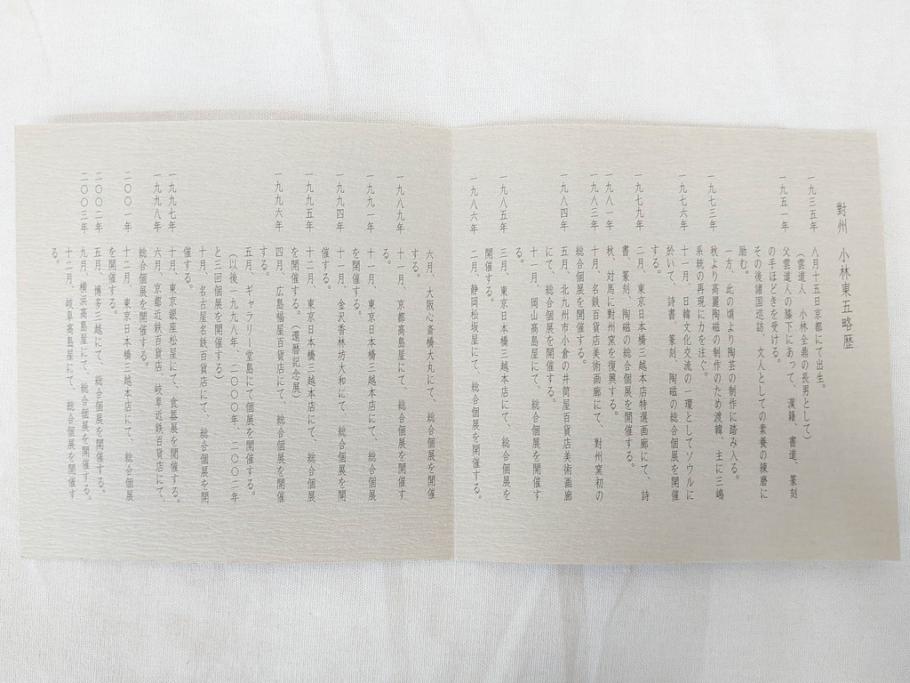 對州 小林東五略歴
一九三五年 八月十五日京都にて出生。
（雲道人 小林全鼎の長男として）
一九五一年 父雲道人の膝下にあって、漢籍、書道、篆刻
の手ほどきを受ける。
その後諸国巡訪、文人としての素養の練磨に
励む。
一九七三年 一方、此の頃より陶芸の制作に踏み入る。
秋より高麗陶磁の制作のため渡韓、主に三嶋
系統の再現に力を注ぐ。
一九七六年 十一月、日韓文化交流の一環としてソウルに
於いて、詩書、篆刻、陶磁の総合個展を開催
する。
一九七九年 二月、東京日本橋三越本店特選画廊にて、詩
書、篆刻、陶磁の総合個展を開催する。
一九八一年 秋、対馬に對州窯を復興する。
一九八三年 十月、名鉄百貨店美術画廊にて、對州窯初の
総合個展を開催する。
一九八四年 五月、北九州市小倉の井筒屋百貨店美術画廊
にて、総合個展を開催する。
十一月、岡山高島屋にて、総合個展を開催す
る。
一九八五年 三月、東京日本橋三越本店にて、総合個展を
開催する。
一九八六年 二月、静岡松坂屋にて、総合個展を開催する。
六月、大阪心斎橋大丸にて、総合個展を開催
する。
一九八九年 十一月、京都高島屋にて、総合個展を開催す
る。
一九九一年 十一月、東京日本橋三越本店にて、総合個展
を開催する。
一九九四年 十一月、金沢香林坊大和にて、総合個展を開
催する。
一九九五年 十二月、東京日本橋三越本店にて、総合個展
を開催する。（還暦記念展）
一九九六年 四月、広島福屋百貨店にて、総合個展を開催
する。
五月、ギャラリー堂島にて個展を開催する。
（以後一九九八年、二〇〇〇年、二〇〇二年
と三回個展を開催する）
十月、名古屋名鉄百貨店にて、総合個展を開
催する。
一九九七年 十月、東京銀座松屋にて、食器展を開催する。
一九九八年 六月、京都近鉄百貨店、岐阜近鉄百貨店にて、
総合個展を開催する。
二〇〇一年 十月、東京日本橋三越本店にて、総合個展
を開催する。
二〇〇二年 五月、博多三越にて、総合個展を開催する。
二〇〇三年 九月、横浜高島屋にて、総合個展を開催する。
十二月、岐阜高島屋にて、総合個展を開催す
る。